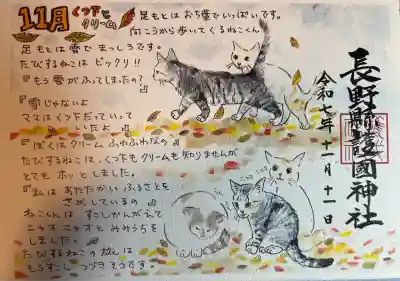 11月 くつ下とクリーム
足もとはおち葉でいっぱいです。
向こうから歩いてくるねこくん
足もとは雪で まっしろです。
たびするねこは ビックリ!!
『もう雪がふってしまったの?』
『雪じゃないよ
ママはくつ下だって いって
いたよ』
『ぼくはクリーム ふわふわなの』
たびするねこは、くつ下もクリームも知りませんが
とても ホッとしました。
『私は あたたかい ふるさとを
さがしているの』
ねこくんは すこしかんがえて
ニャオニャオと みみうちを
しました。
たびするねこの旅は
もうすこしつづきそうです。
長野縣護國神社
令和七年十一月十一日